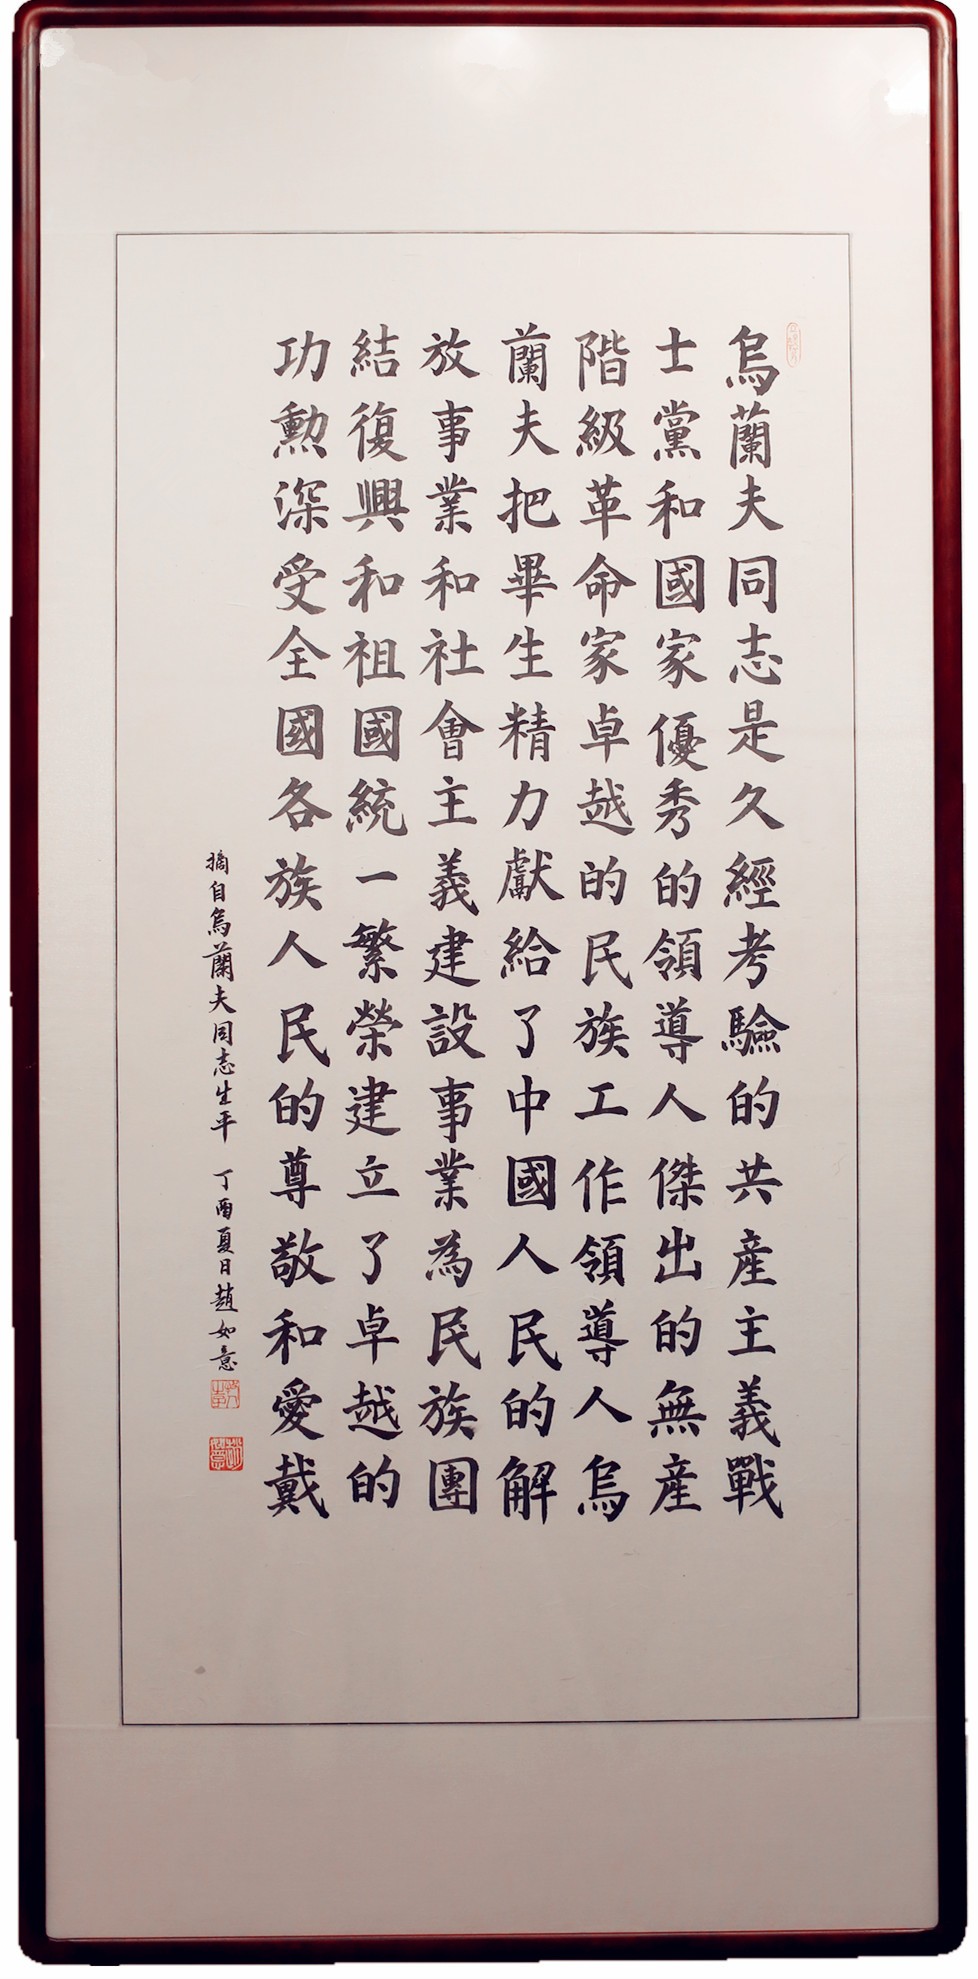 烏蘭夫同志是久經考驗的共産主義戰
士黨和國家優秀的領導人傑出的無産
階級革命家卓越的民族工作領導人烏
蘭夫把畢生精力獻給了中國人民的解
放事業和社會主義建設事業為民族團
結復興和祖國統一繁榮建立了卓越的
功勲深受全國各族人民的尊敬和愛戴
摘自烏蘭夫同志生平 丁酉夏日趙如意